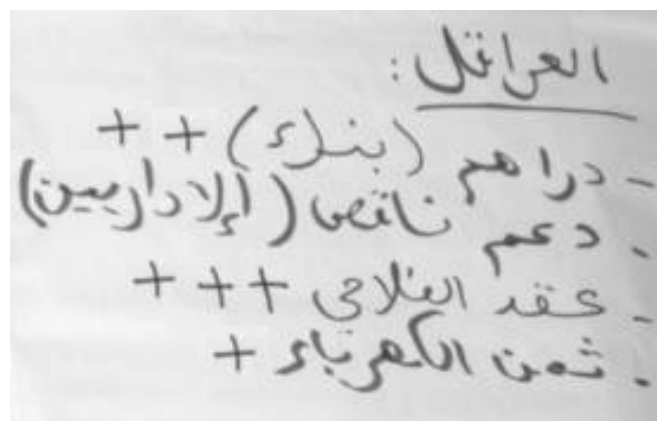 العراقل :
- دراهم (بنك) + +
- دعم ناقص (الإداريين)
- عقد الفلاحي + + +
- ثمن الكهرباء +